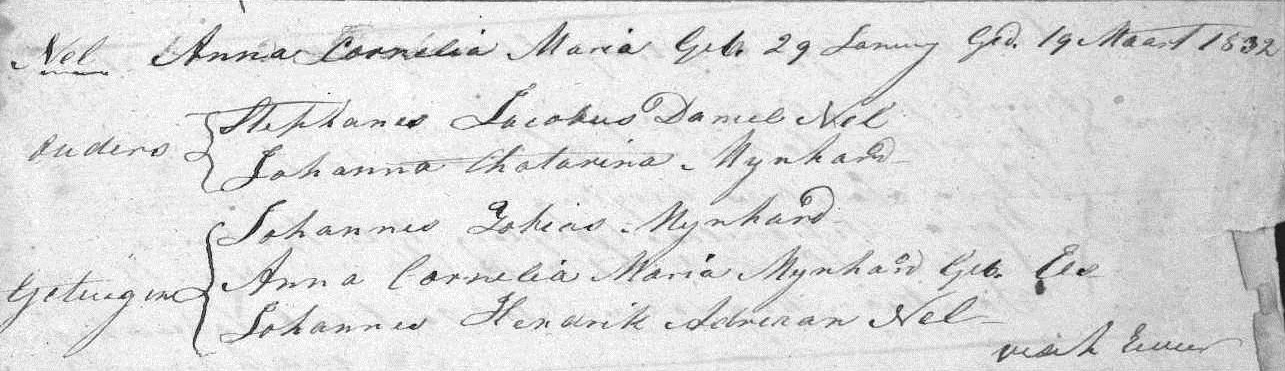 Nel Anna Cornelia Maria Geb. 29 January Ged. 19 Maart 1832
Ouders Stephanus Jacobus Daniel Nel
Johanna Chatarina Mynhard
Johannes Tobias Mynhard
Getuigen Anna Cornelia Maria Mynhard Geb. Els
Johannes Hendrik Adriaan Nel